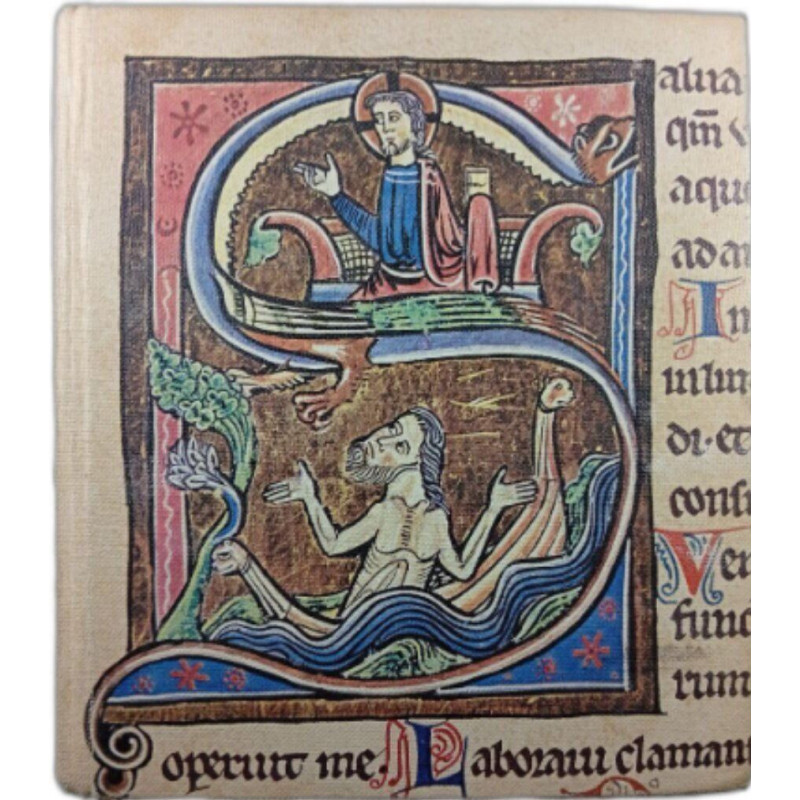 Salua
qm̄
aque
ad an
In
di· et
consi
Ven
fund
rum
operuit me. Laboraui claman